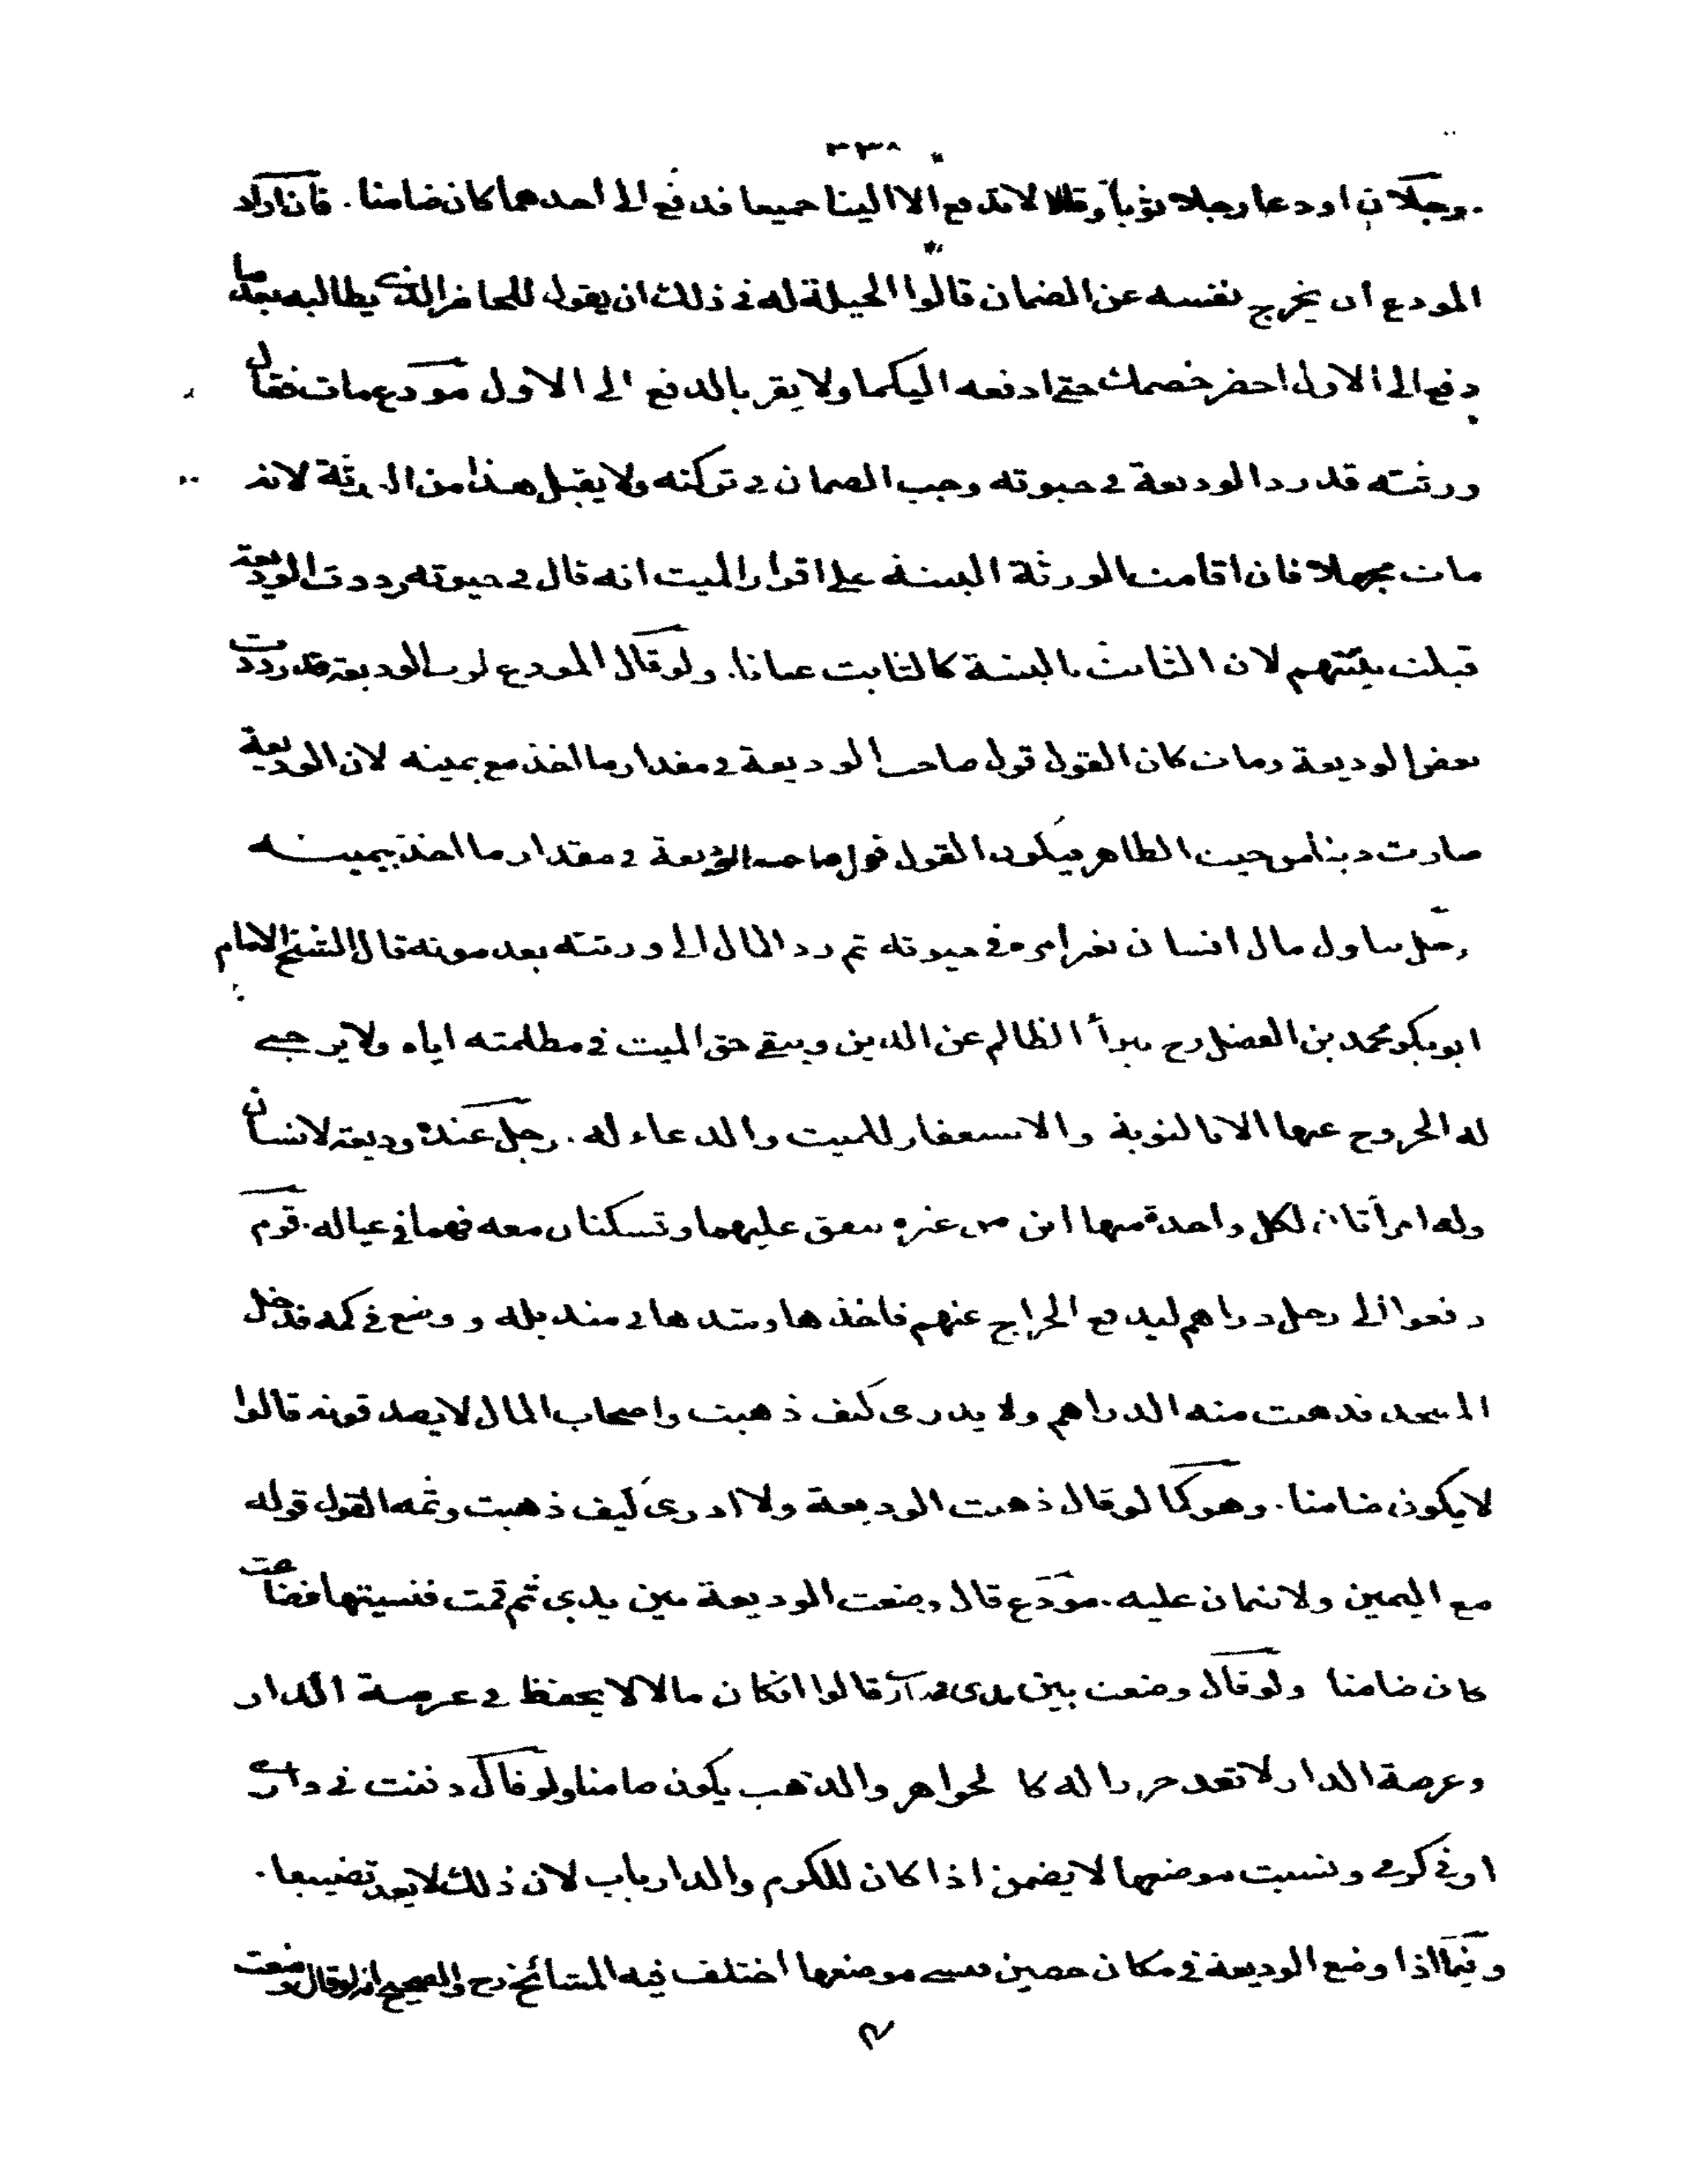 ٣٣٨
رجلان اودعا رجلا ثوبا وقالا لا تدفع الا الينا جميعا فدفع الى احدهما كان ضامنا . فان اراد
المودع ان يخرج نفسه عن الضمان قالوا الحيلة له في ذلك ان يقول للحاضر الذي يطالبه بعد ما
دفع الى الاول احضر خصمك حتى ادفعه اليكما ولا يقر بالدفع الى الاول مودع مات فقال
ورثته قد رد الوديعة في حيوته وجب الضمان في تركته ولا يقبل هذا من الورثة لانه
مات مجهلا فان اقامت الورثة البينة على اقرار الميت انه قال في حيوته رددت الوديعة
قبلت بينتهم لان الثابت بالبينة كالثابت عيانا . ولو قال المودع لرب الوديعة قد رددت
بعض الوديعة ومات كان القول قول صاحب الوديعة في مقدار ما اخذ مع يمينه لان الوديعة
صارت دينا من حيث الظاهر فيكون القول قول صاحب الوديعة في مقدار ما اخذ بيمينه
رجل تناول مال انسان بغير امره في حيوته ثم رد المال الى ورثته بعد موته قال الشيخ الامام
ابو بكر محمد بن الفضل رح يبرأ الظالم عن الدين ويبقى حق الميت في مظلمته اياه ولا يرجى
له الخروج عنها الا بالتوبة والاستغفار للميت والدعاء له . رجل عنده وديعة لانسان
وله امرأتان لكل واحدة منها ابن من غيره ينفق عليهما وتسكنان معه فهما في عياله . قوم
دفعوا الى رجل دراهم ليدفع الخراج عنهم فاخذها وشدها في منديله ووضع في كمه فدخل
المسجد فذهبت منه الدراهم ولا يدرى كيف ذهبت واصحاب المال لا يصدقونه قالوا
لا يكون ضامنا . وهو كما لو قال ذهبت الوديعة ولا ادرى كيف ذهبت وثمه القول قوله
مع اليمين ولا ضمان عليه . مودع قال وضعت الوديعة بين يدي ثم قمت فنسيتها فضاعت
كان ضامنا ولو قال وضعت بين يدي في دار قالوا انكان مالا لا يحفظ في عرصة الدار
وعرصة الدار لا تعد حرزا له كالجواهر والذهب يكون ضامنا ولو قال دفنت في داري
او في كرمي ونسيت موضعها لا يضمن اذا كان للكرم والدار باب لان ذلك لا يعد تضييعا .
وفيما اذا وضع الوديعة في مكان حصين فنسي موضعها اختلف فيه المشائخ رح والصحيح انه لو قال وضعت